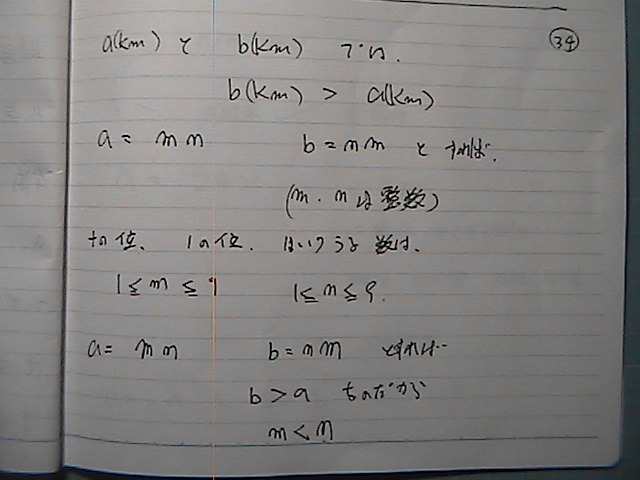 a(km) と b(km) では. ㉞
b(km) > a(km)
a = m n b = n m と すれば.
(m. n は 整数)
十の位、 1の位. はいりうる 数は、
1≦m≦9 1≦n≦9.
a= m n b = n m とすれば…
b>a なのだから
m<n